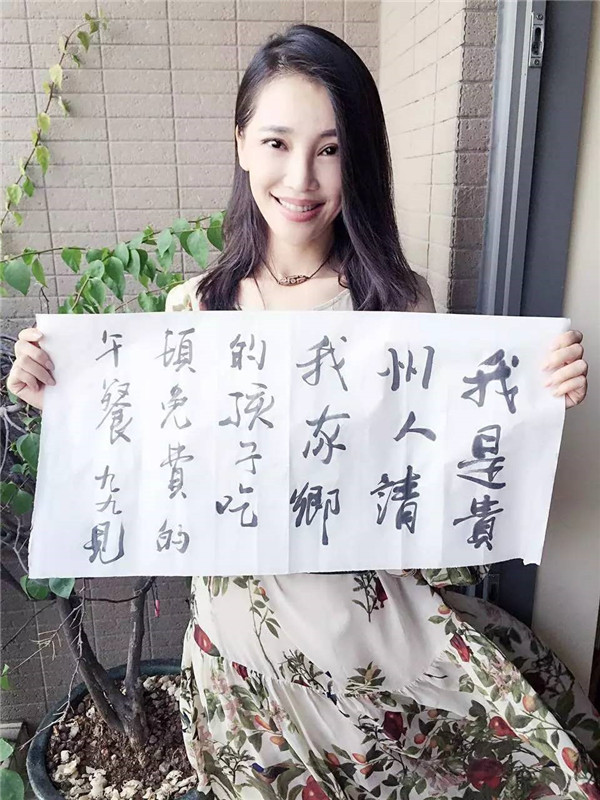 我是貴
州人請
我家鄉
的孩子吃
頓免費的
午餐 九九見